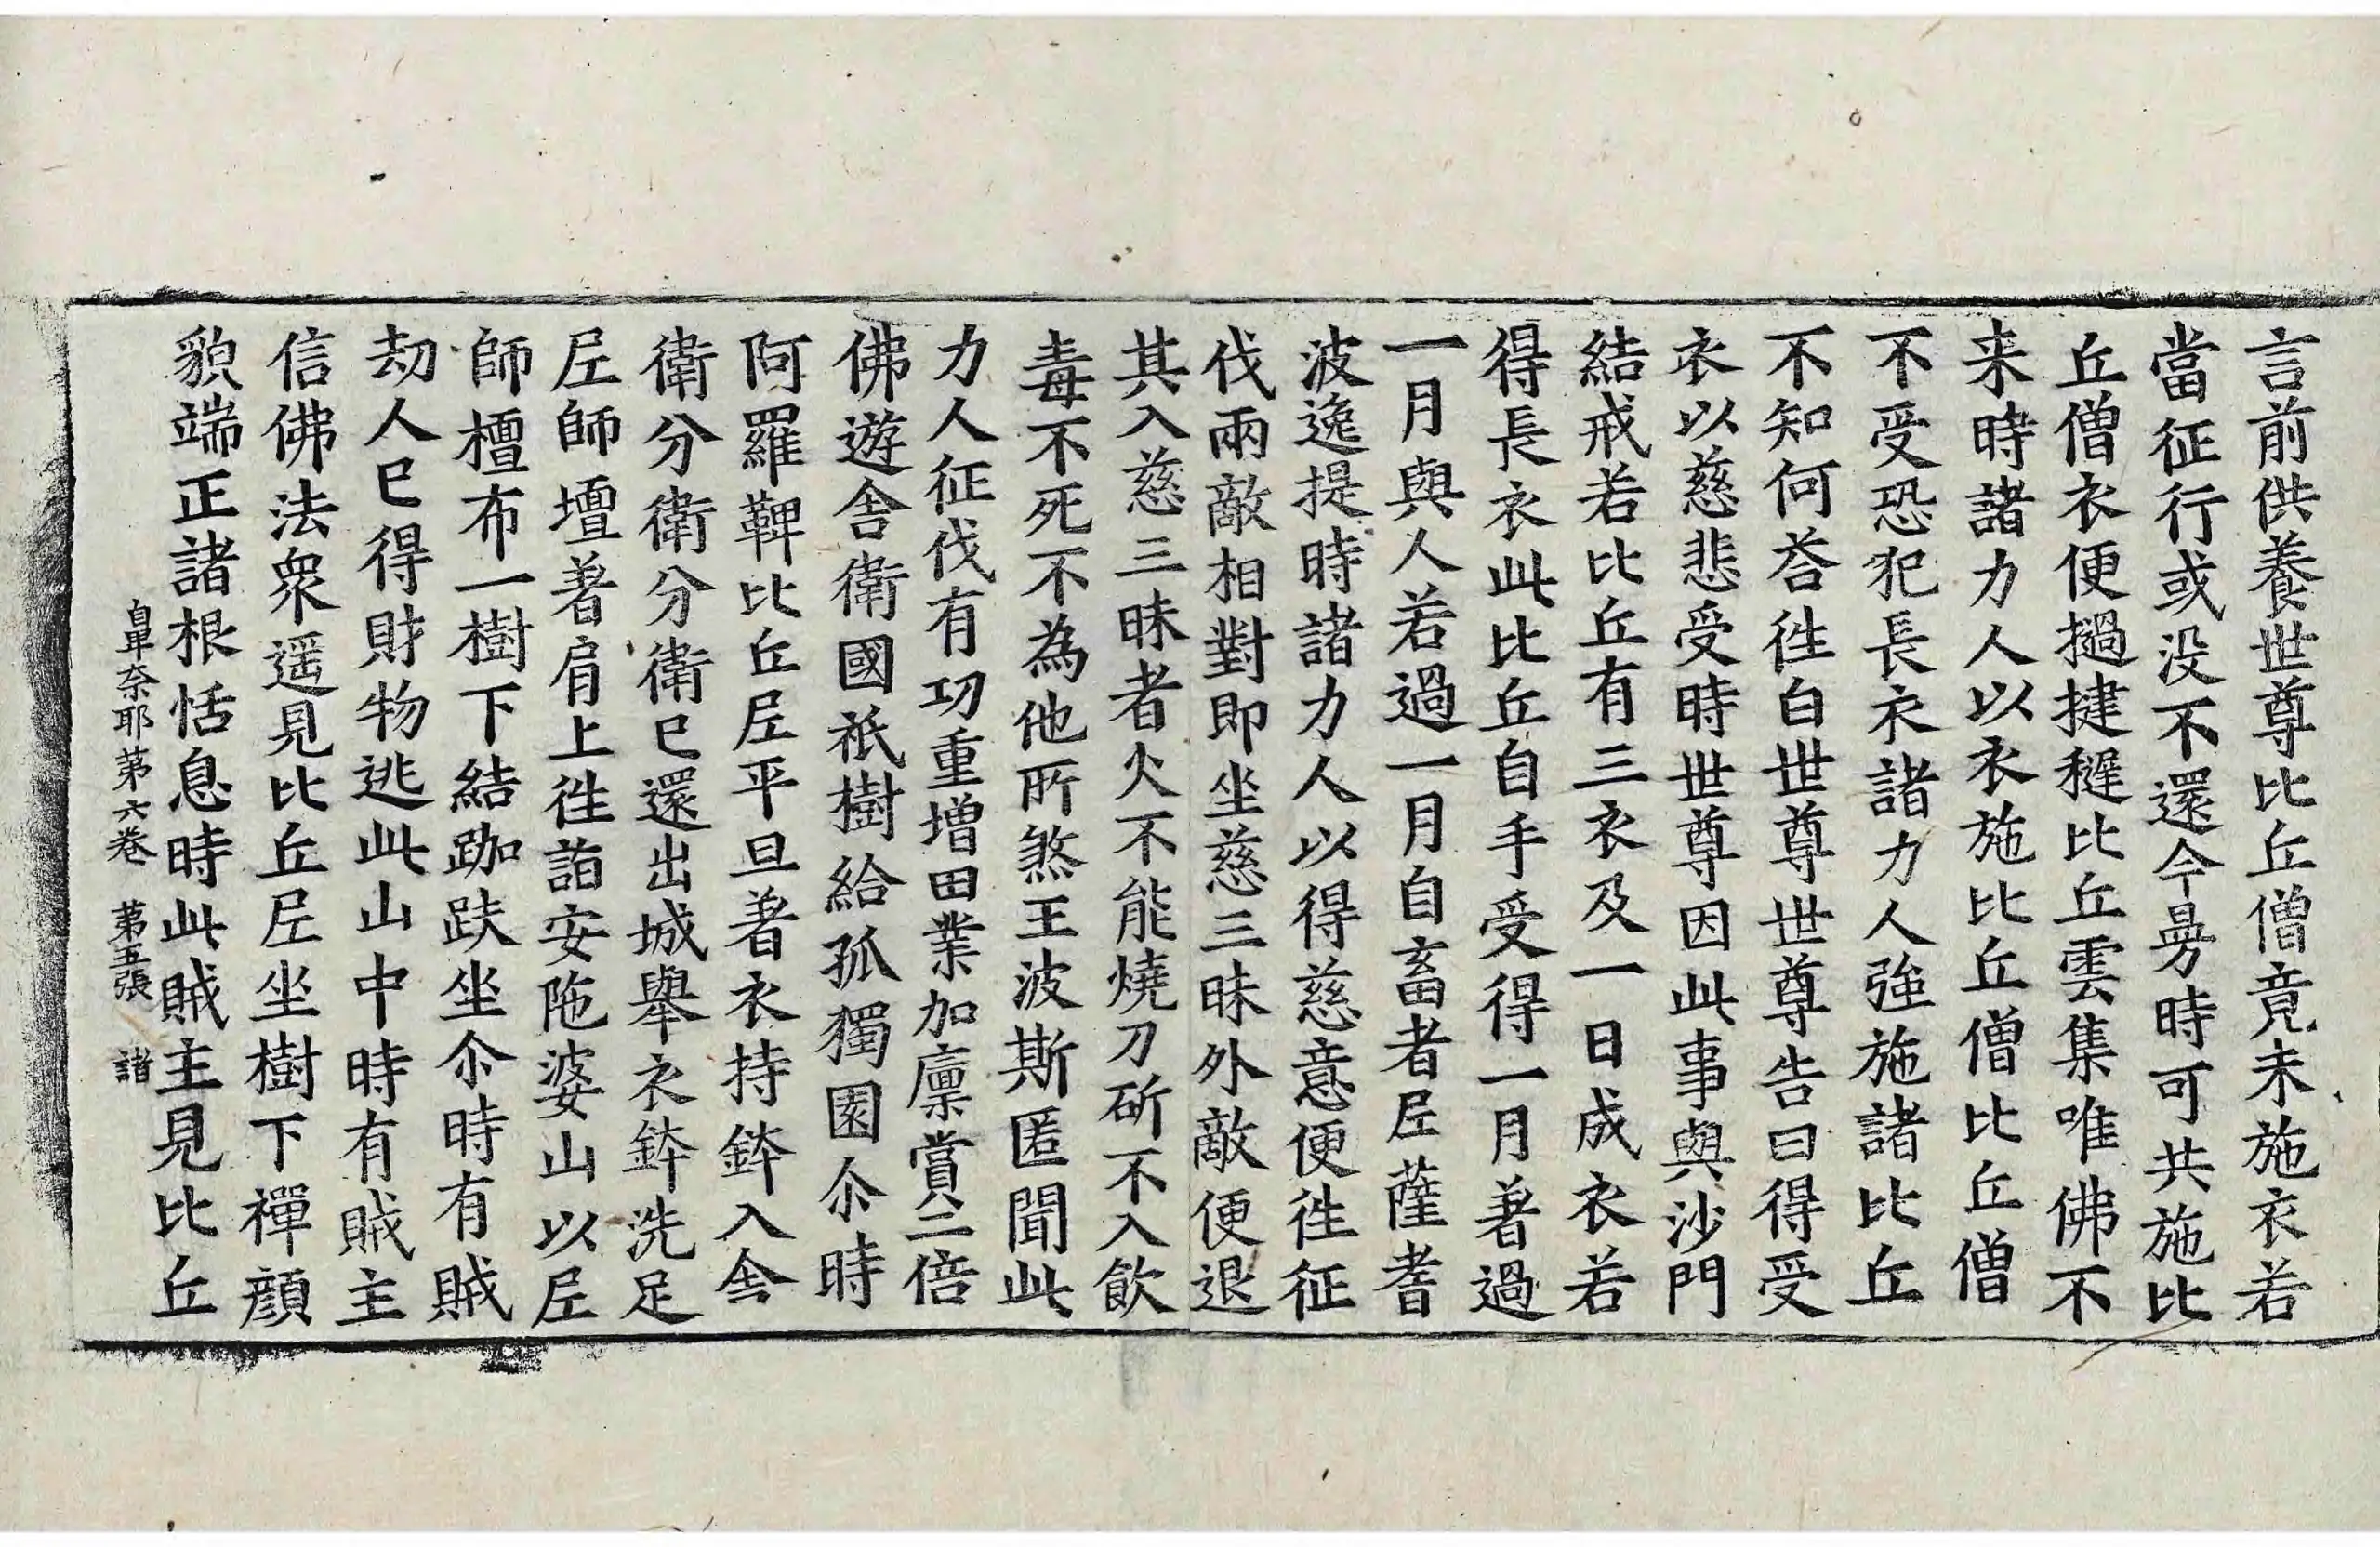 言前供養世尊比丘僧竟未施衣若
當征行或没不還今曼時可共施比
丘僧衣便撾揵稺比丘雲集唯佛不
来時諸力人以衣施比丘僧比丘僧
不受恐犯長衣諸力人強施諸比丘
不知何荅徃白世尊世尊告曰得受
衣以慈悲受時世尊因此事與沙門
結戒若比丘有三衣及一日成衣若
得長衣此比丘自手受得一月著過
一月與人若過一月自畜者尼薩耆
波逸提時諸力人以得慈意便徃征
伐兩敵相對即坐慈三昧外敵便退
其入慈三昧者火不能燒刀斫不入飲
毒不死不為他所煞王波斯匿聞此
力人征伐有功重增田業加廩賞二倍
佛遊舎衛國祇樹給孤獨園尒時
阿羅鞞比丘尼平旦著衣持鉢入舎
衛分衛分衛已還出城舉衣鉢洗足
尼師壇著肩上徃詣安陁婆山以尼
師檀布一樹下結跏趺坐尒時有賊
劫人已得財物逃此山中時有賊主
信佛法衆遥見比丘尼坐樹下禪顔
貌端正諸根恬息時此賊主見比丘
鼻奈耶第六卷　第五張　諸